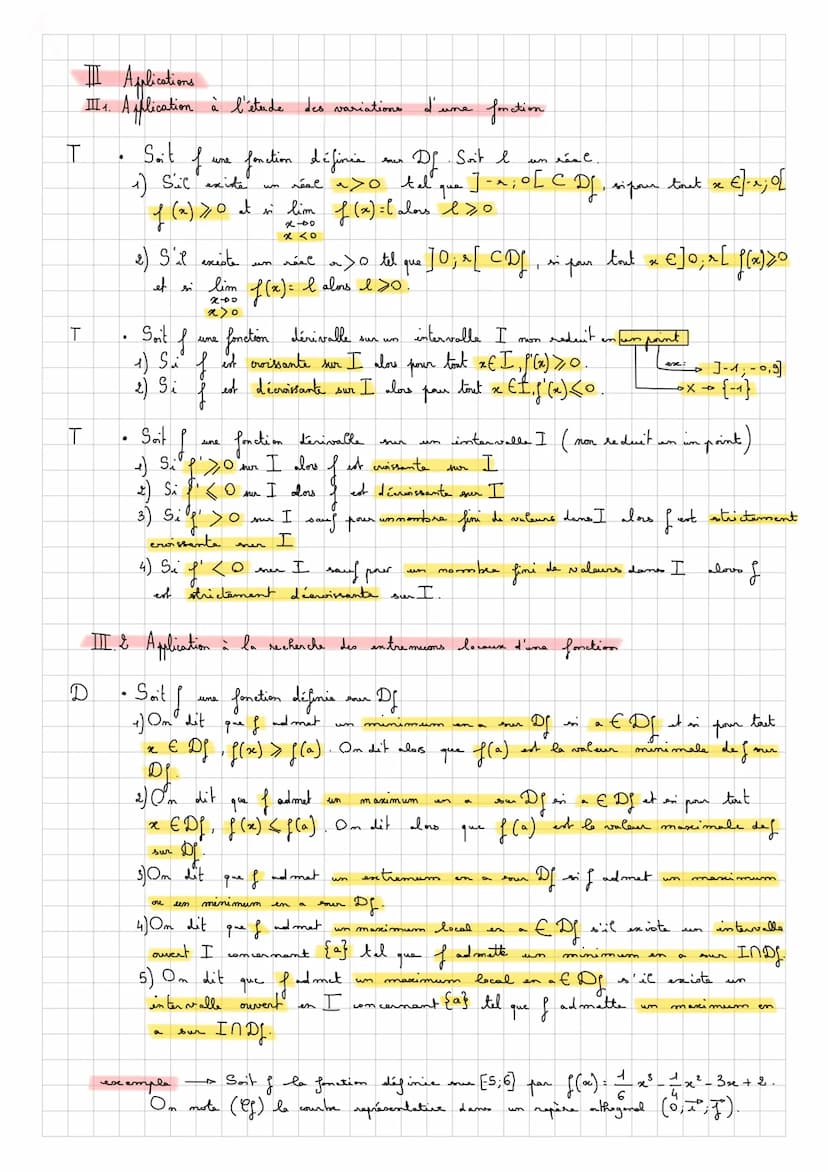 III Applications
III 1. Application à l'étude des variations d'une fonction
T • Soit f une fonction définie sur Df. Soit l un réel.
1) S'il existe un réel r>0 tel que ]-r;0[ ⊂ Df, si pour tout x ∈]-r;0[
f(x)⩾0 et si lim f(x)=l alors l⩾0
x→0
x<0
2) S'il existe un réel r>0 tel que ]0;r[ ⊂ Df, si pour tout x ∈]0;r[ f(x)⩾0
et si lim f(x)=l alors l⩾0.
x→0
x>0
T • Soit f une fonction dérivable sur un intervalle I non réduit en un point
1) Si f est croissante sur I alors pour tout x∈I, f'(x)⩾0. ex: → ]-1;-0,9]
2) Si f est décroissante sur I alors pour tout x∈I, f'(x)⩽0. →X→ {-1}
T • Soit f une fonction dérivable sur un intervalle I (non reduit en un point)
1) Si f'⩾0 sur I alors f est croissante sur I
2) Si f'⩽0 sur I alors f est décroissante sur I
3) Si f'>0 sur I sauf pour un nombre fini de valeurs dans I alors f est strictement
croissante sur I
4) Si f'<0 sur I sauf pour un nombre fini de valeurs dans I alors f
est strictement décroissante sur I.
III.2 Application à la recherche des extremums locaux d'une fonction
D • Soit f une fonction définie sur Df
1) On dit que f admet un minimum en a sur Df si a ∈ Df et si pour tout
x ∈ Df, f(x)⩾f(a). On dit alors que f(a) est la valeur minimale de f sur
Df.
2) On dit que f admet un maximum en a sur Df si a ∈ Df et si pour tout
x ∈ Df, f(x)⩽f(a). On dit alors que f(a) est la valeur maximale de f
sur Df.
3) On dit que f admet un extremum en a sur Df si f admet un maximum
ou un minimum en a sur Df.
4) On dit que f admet un maximum local en a ∈ Df s'il existe un intervalle
ouvert I concernant {a} tel que f admette un minimum en a sur I∩Df.
5) On dit que f admet un maximum local en a ∈ Df s'il existe un
intervalle ouvert en I concernant {a} tel que f admette un maximum en
a sur I∩Df.
exemple → Soit f la fonction définie sur [-5;6] par f(x)= 1/6 x³ - 1/4 x² - 3x + 2.
On note (Cf) la courbe représentative dans un repère othogonal (0;i⃗;j⃗).